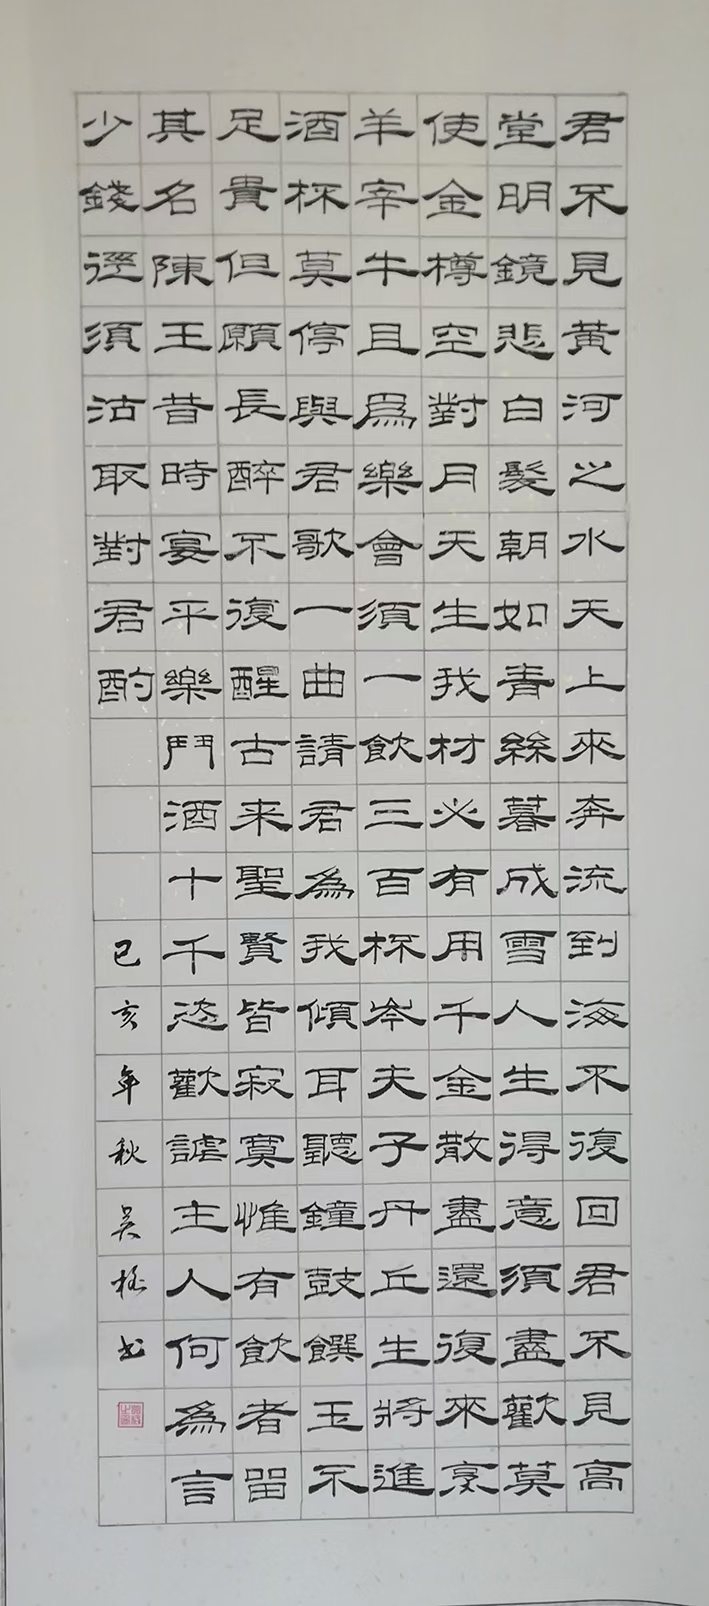 君不見黃河之水天上來奔流到海不復回君不見高
堂明鏡悲白髮朝如青絲暮成雪人生得意須盡歡莫
使金樽空對月天生我材必有用千金散盡還復來烹
羊宰牛且爲樂會須一飲三百杯岑夫子丹丘生將進
酒杯莫停與君歌一曲請君為我傾耳聽鐘鼓饌玉不
足貴但願長醉不復醒古来聖賢皆寂寞惟有飲者留
其名陳王昔時宴平樂鬥酒十千恣歡謔主人何為言
少錢徑須沽取對君酌
己亥年秋吴书